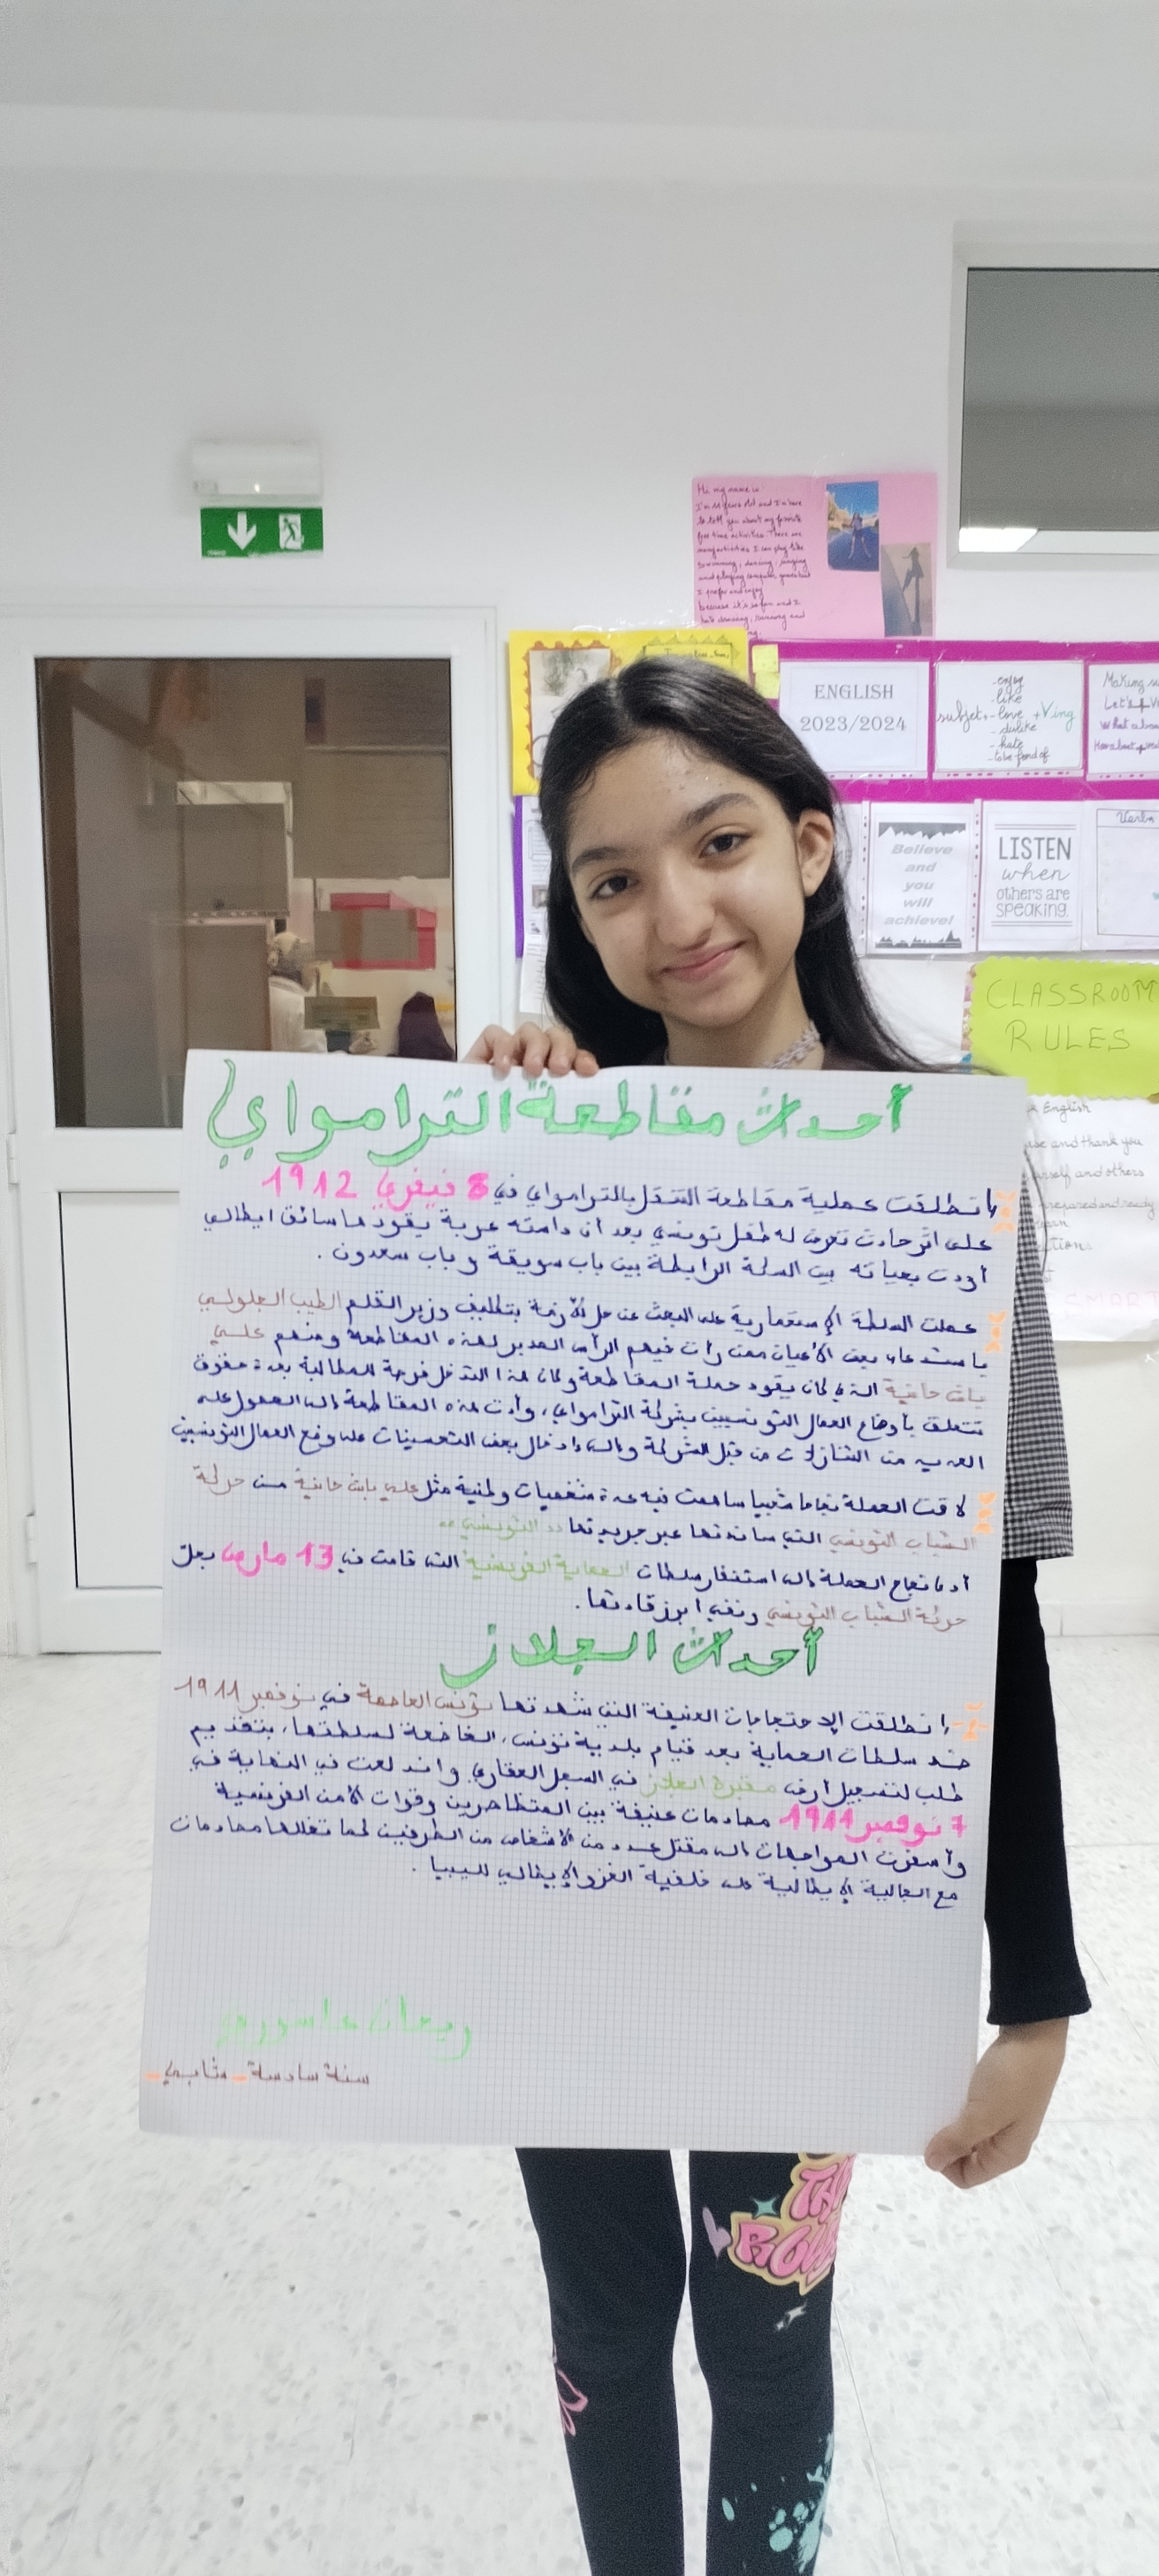 Hi my name is
I'm 11 years old and I'm here
to tell you about my favorite
free time activities. There are
many activities I can play like
swimming, dancing, singing
and playing computer games but
I prefer and enjoy
because it's so fun and I
hate dancing, running and
ENGLISH
2023/2024
subject + +Ving
- enjoy
- like
- love
- dislike
- hate
- to be fond of
Making su
Let's + V
What abou
How about
Believe
and
you
will
achieve!
LISTEN
when
others are
speaking.
Verbs
CLASSROOM
RULES
English
use and thank you
urself and others
prepared and ready
learn
ctions
SMART
أحداث مقاطعة التراموي
انطلقت عملية مقاطعة التنقل بالتراموي في 8 فيفري 1912
على اثر حادث تعرض له طفل تونسي بعد أن داسته عربة يقودها سائق ايطالي
أودت بحياته بين السكة الرابطة بين باب سويقة و باب سعدون .
عملت السلطة الإستعمارية على البحث عن حل للأزمة بتكليف وزير القلم الطيب الجلولي
باستدعاء بعض الأعيان ممن رأت فيهم الرأس المدبر لهذه المقاطعة ومنهم علي
باش حانبة الذي كان يقود حملة المقاطعة وكان هذا التدخل فرصة للمطالبة بعدة حقوق
تتعلق بأوضاع العمال التونسيين بشركة التراموي، وأدت هذه المقاطعة إلى الحصول على
العديد من التنازلات من قبل الشركة وإلى إدخال بعض التحسينات على وضع العمال التونسيين
لاقت الحملة نجاحا شعبيا ساهمت فيه عدة شخصيات وطنية مثل علي باش حانبة من حركة
الشباب التونسي التي ساندتها عبر جريدتها "التونسي"
أدى نجاح الحملة إلى استنفار سلطات الحماية الفرنسية التي قامت في 13 مارس بحل
حركة الشباب التونسي ونفي أبرز قادتها.
أحداث الجلاز
انطلقت الإحتجاجات العنيفة التي شهدتها تونس العاصمة في نوفمبر 1911
ضد سلطات الحماية بعد قيام بلدية تونس، الخاضعة لسلطتها، بتقديم
طلب لتسجيل أرض مقبرة الجلاز في السجل العقاري واندلعت في النهاية في
7 نوفمبر 1911 مصادمات عنيفة بين المتظاهرين وقوات الأمن الفرنسية
وأسفرت المواجهات إلى مقتل عدد من الأشخاص من الطرفين كما تخللها مصادمات
مع الجالية الإيطالية على خلفية الغزو الإيطالي لليبيا .
سنة سادسة - شابي -
THE